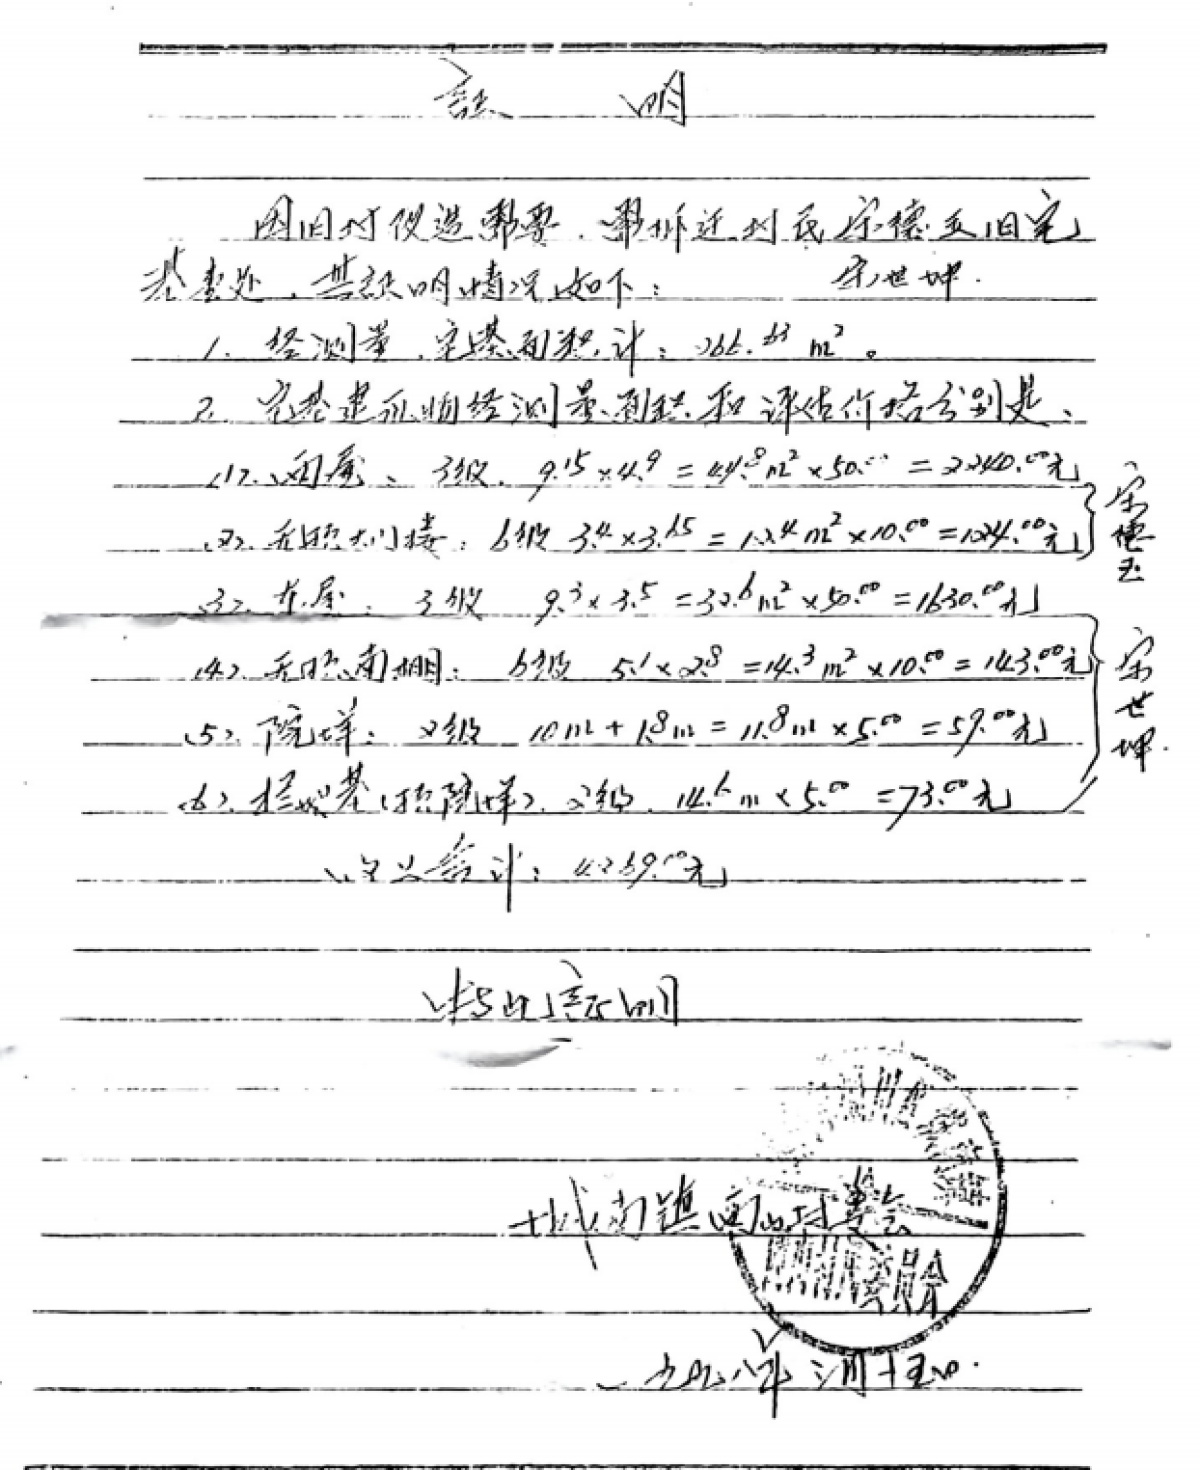 证 明
因旧村改造需要,需拆迁村民宋德玉旧宅
宋世坤.
基壹处,其证明情况如下:
1. 经测量,宅基面积计: 266.63 m²。
2. 宅基建筑物经测量面积和评估价格分别是、
(1)、西屋、3级. 9.15×4.9=44.8m²×50.00=2240.00元
(2)、无照大门楼: 6级 3.4×3.65=12.4m²×10.00=124.00元
宋德玉
(3)、东屋: 3级 9.3×3.5=32.6m²×50.00=1630.00元
(4)、无照南棚: 6级 5.1×2.8=14.3m²×10.00=143.00元
(5)、院墙: 2级 10m+1.8m=11.8m×5.00=59.00元
宋世坤.
(6)、墙基(顶院墙)、2级. 14.6m×5.00=73.00元
以上合计: 4269.00元
特此证明
城南镇 村委会
委员会
一九九八年 月十五日.